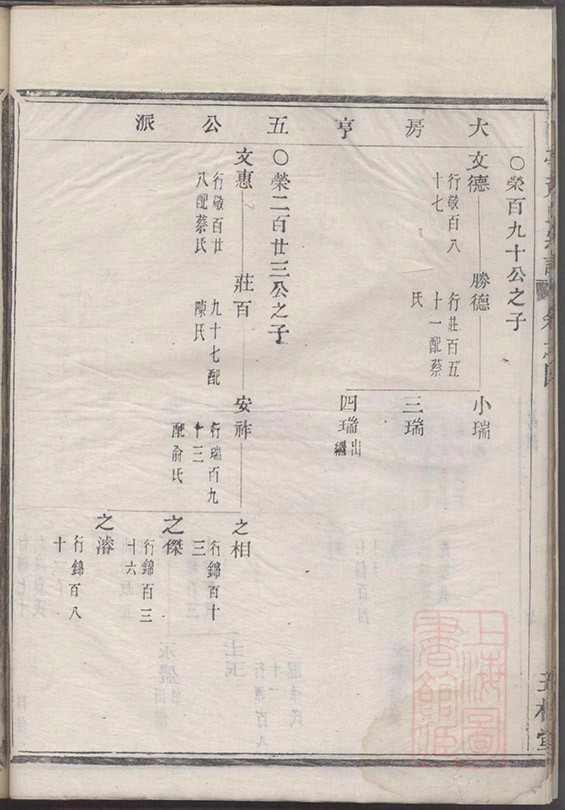 大房亨五公派
○榮百九十公之子
文德
行敬百八
十七
勝德
行莊百五
十一配蔡
氏
小瑞
三瑞
四瑞出
繼
○榮二百廿三公之子
文惠
行敬百廿
八配蔡氏
莊百
九十七配
陳氏
安祚
行瑞百九
十三
配俞氏
之相
行錦百十
三
之傑
行錦百三
十六
之濬
行錦百八
十
上海圖
書館藏